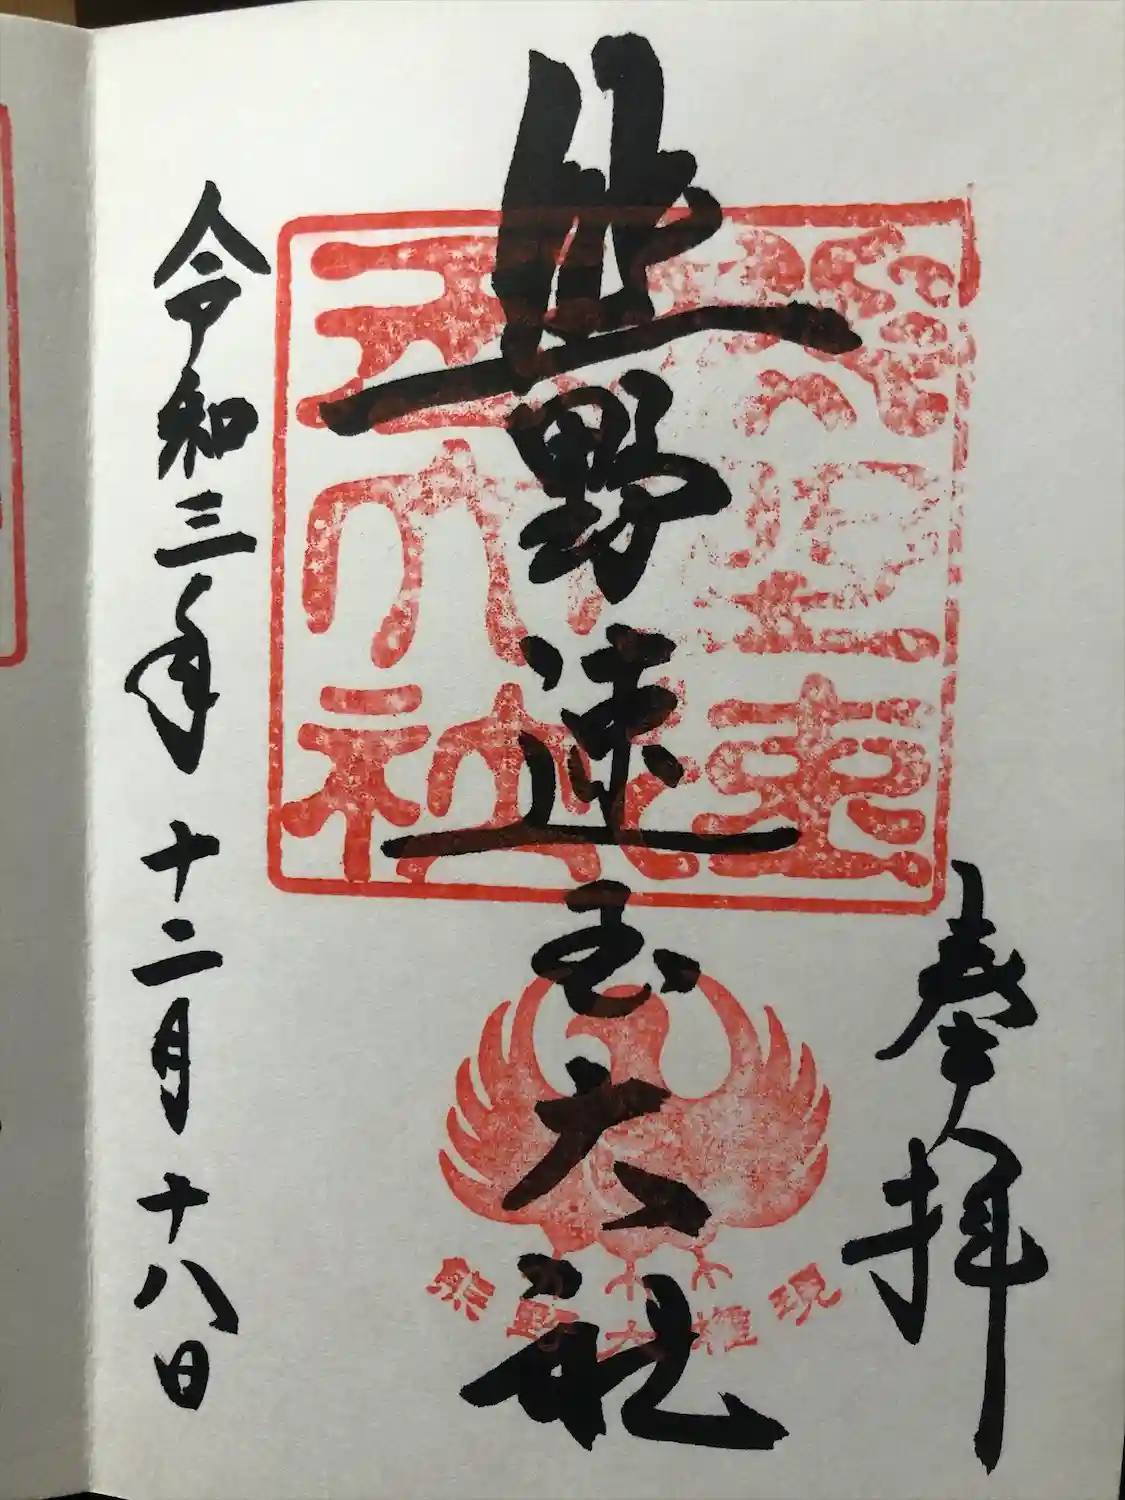 奉拝
熊野速玉大社
令和三年十二月十八日
熊野速玉大社
熊野大権現